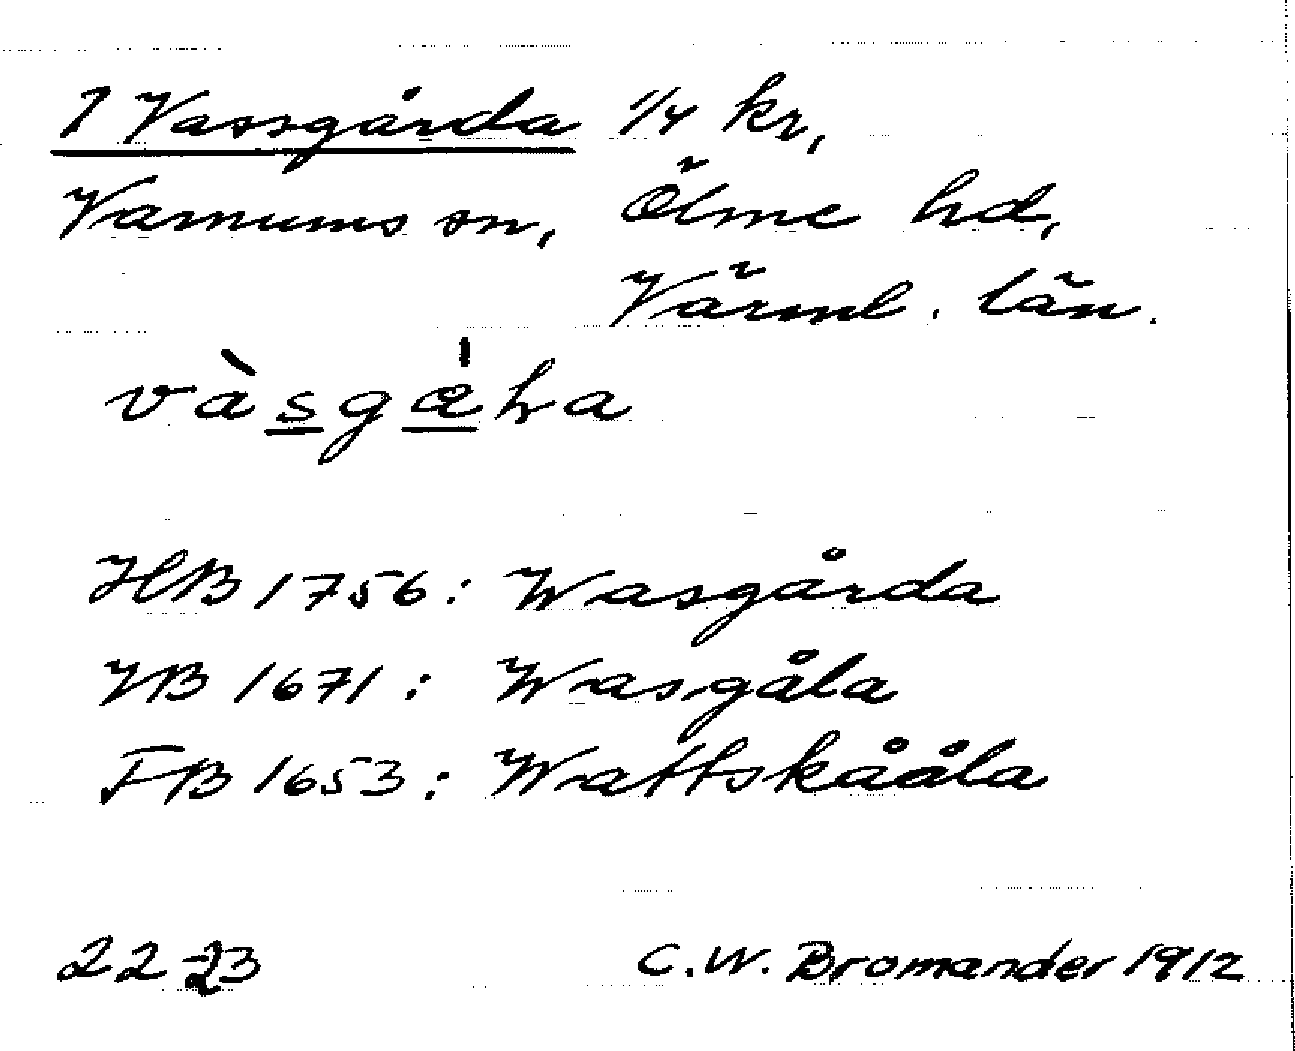 1 Vassgårda 1/4 kr,
Varnums sn, Ölme hd,
Värml. län.
vàsgæ̀ɽa
HB 1756: Wasgårda
JB 1671: Wasgåla
FB 1653: Wattskååla
22-23 C.W. Bromander 1912